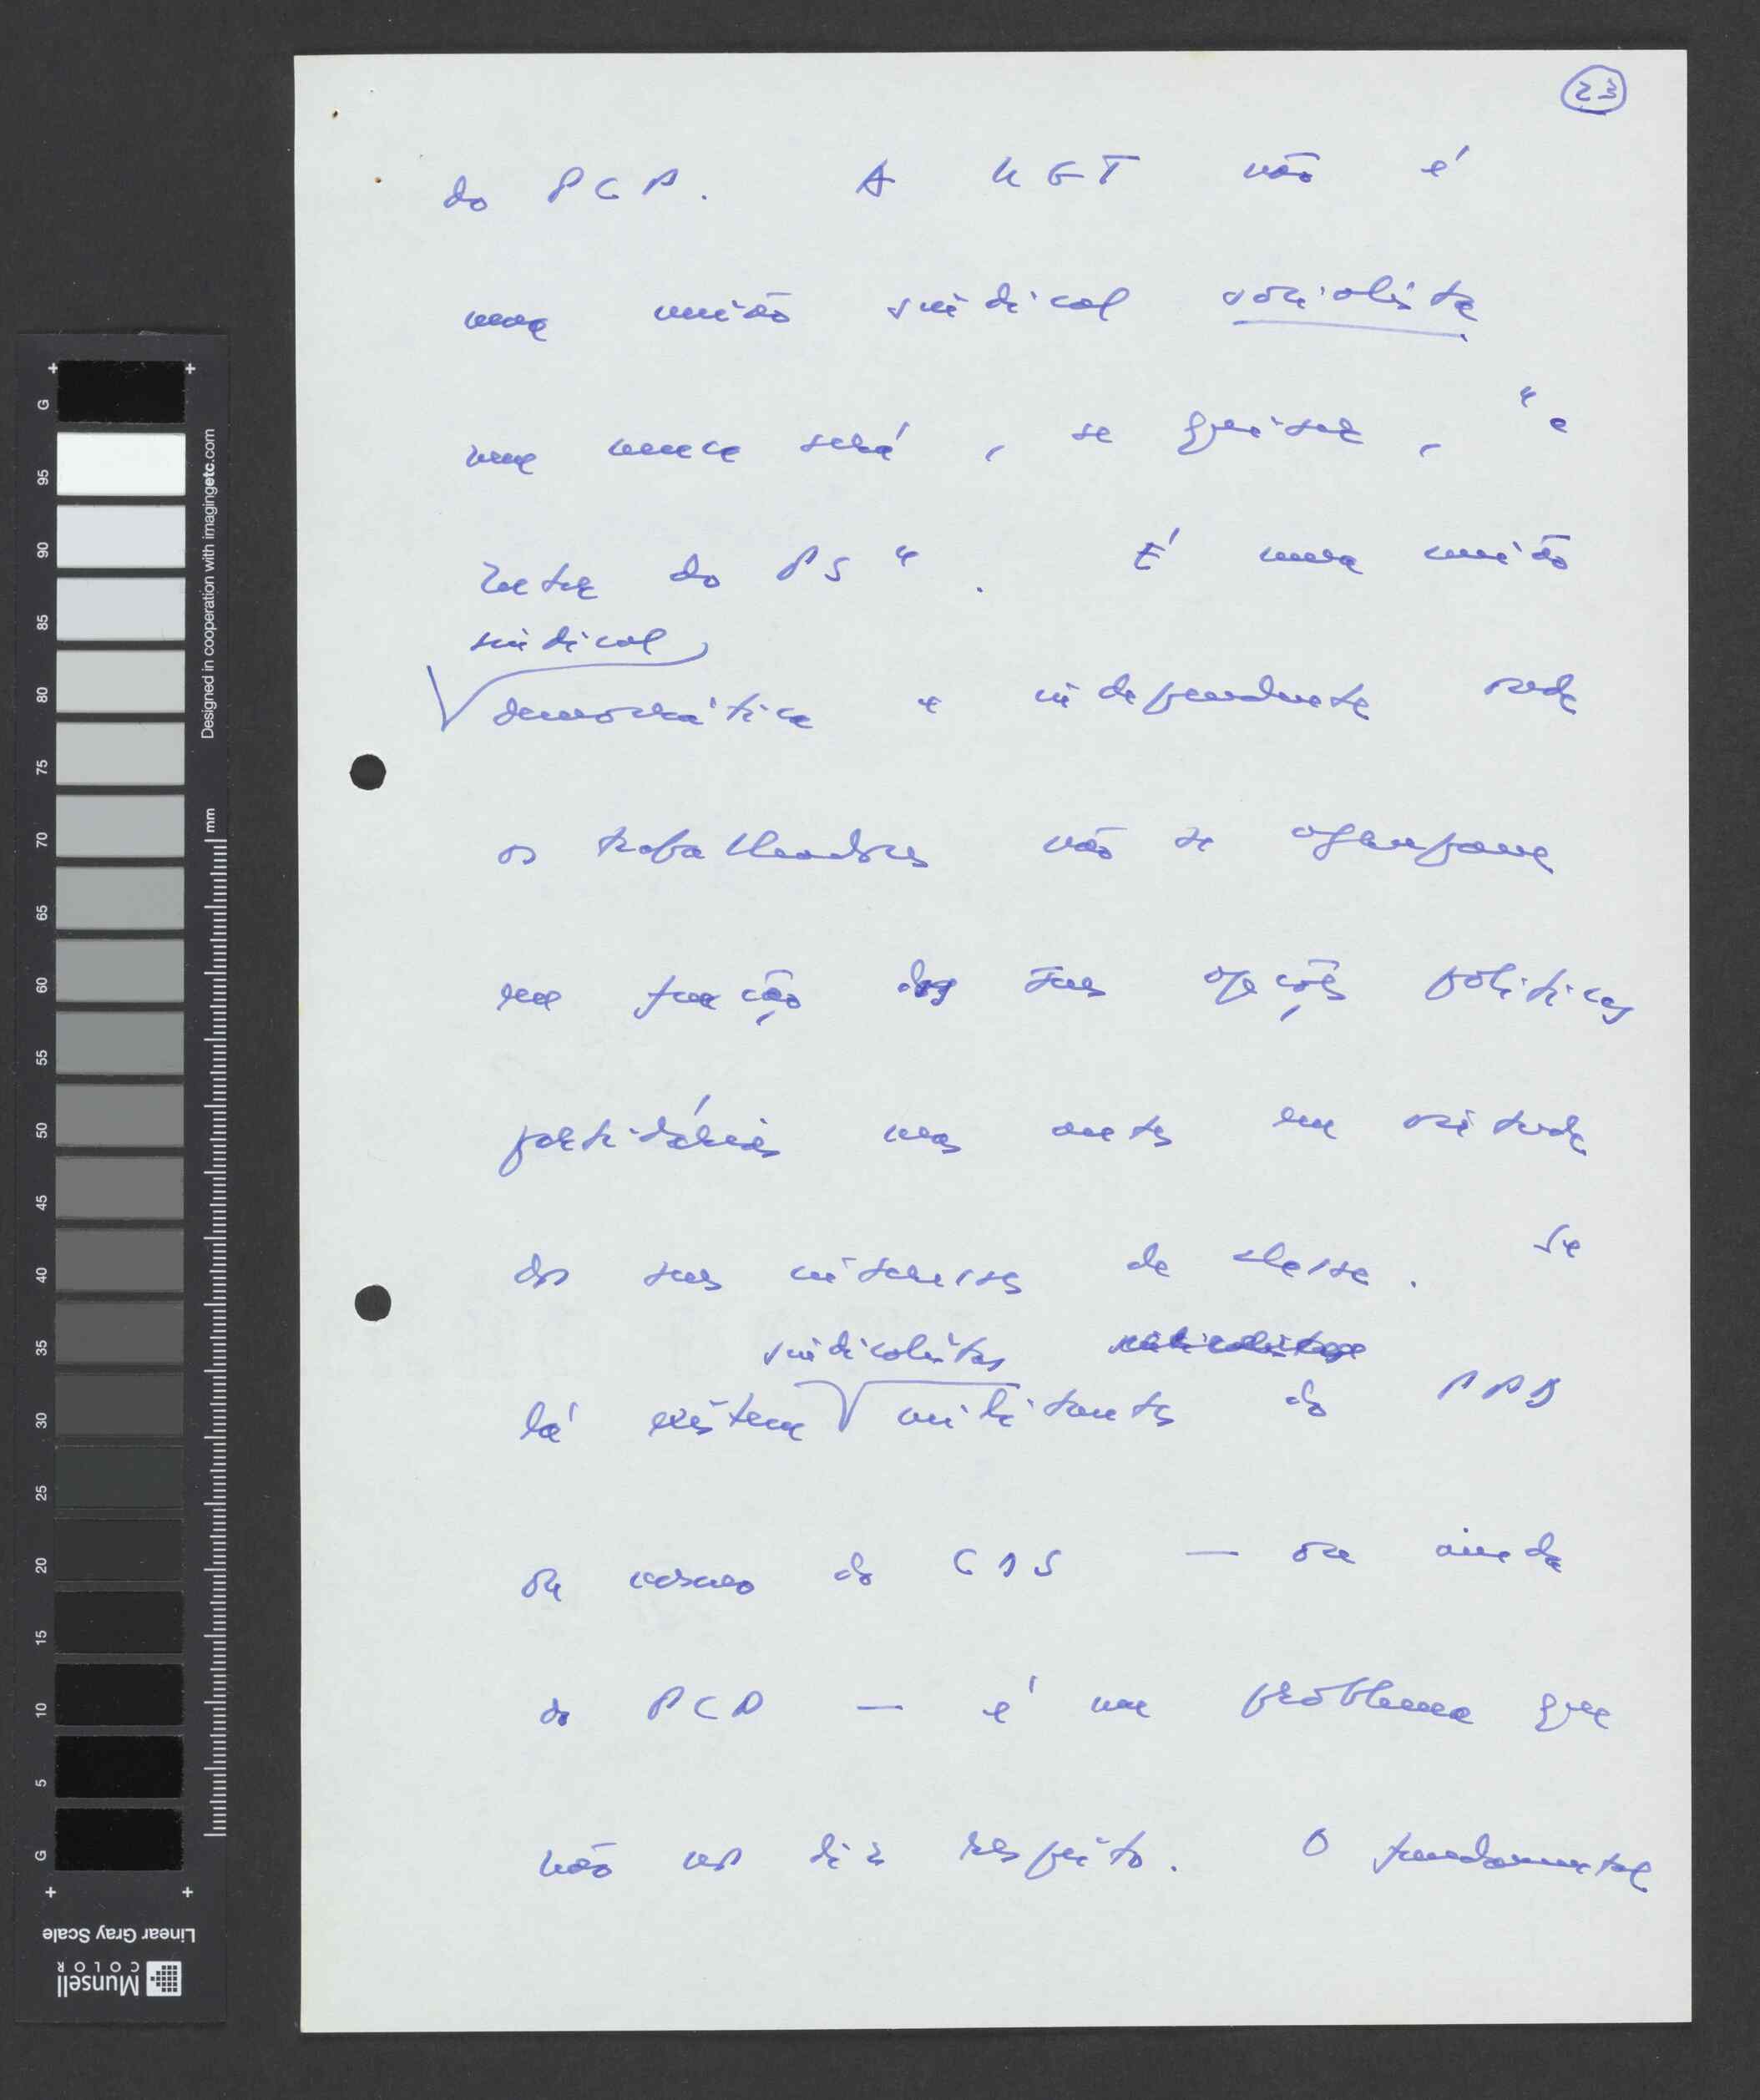 23
do PCP. A UGT não é
uma união sindical socialista
nem nunca será, se quiser, "a
Intersindical do PS". É uma união
sindical
democrática e independente onde
os trabalhadores não se agrupam
em função das suas opções políticas
partidárias mas antes em virtude
dos seus interesses de classe. Se
sindicalistas
lá existem militantes do PPD
ou mesmo do CDS — ou ainda
do PCP — é um problema que
não nos diz respeito. O fundamental
G 95 90 85 80 75 70 65 60 55 50 45 40 35 30 25 20 15 10 5 G
Designed in cooperation with imagingetc.com
mm
Linear Gray Scale
Munsell
COLOR